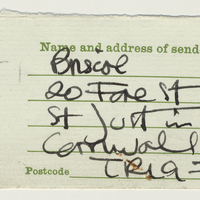 Name and address of send
Briscoe
20 Fore St
St Just in
Cornwall
Postcode TR19